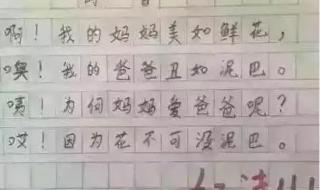 啊！我的妈妈美如鲜花，
噢！我的爸爸丑如泥巴。
咦！为何妈妈爱爸爸呢？
哎！因为花不可没泥巴。